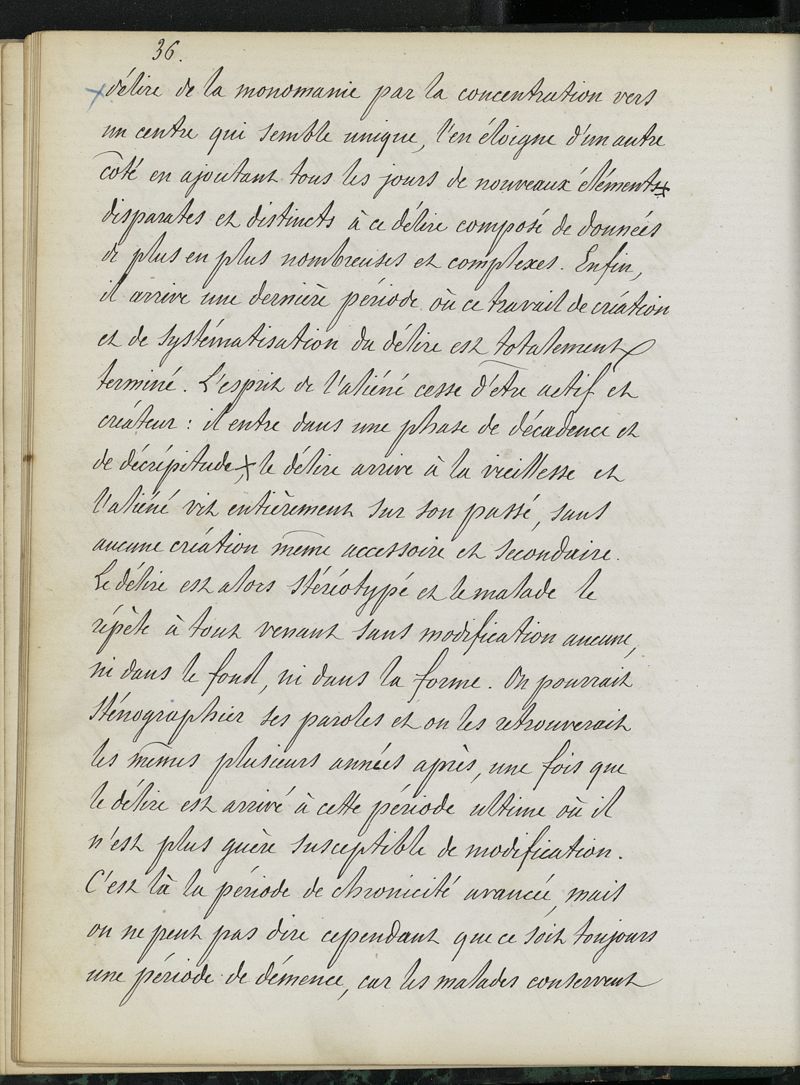 36.
délire de la monomanie par la concentration vers
un centre qui semble unique, l'en éloigne d'un autre
côté en ajoutant tous les jours de nouveaux éléments
disparates et distincts à ce délire composé de données
de plus en plus nombreuses et complexes. Enfin,
il arrive une dernière période où ce travail de création
et de systématisation du délire est totalement
terminé. L'esprit de l'aliéné cesse d'être actif et
créateur : il entre dans une phase de décadence et
de décrépitude, le délire arrive à la vieillesse et
l'aliéné vit entièrement sur son passé, sans
aucune création même accessoire et secondaire.
Le délire est alors stéréotypé et le malade le
répète à tout venant sans modification aucune,
ni dans le fond, ni dans la forme. On pourrait
sténographier ses paroles et on les retrouverait
les mêmes plusieurs années après, une fois que
le délire est arrivé à cette période ultime où il
n'est plus guère susceptible de modification.
C'est là la période de chronicité avancée, mais
on ne peut pas dire cependant que ce soit toujours
une période de démence, car les malades conservent